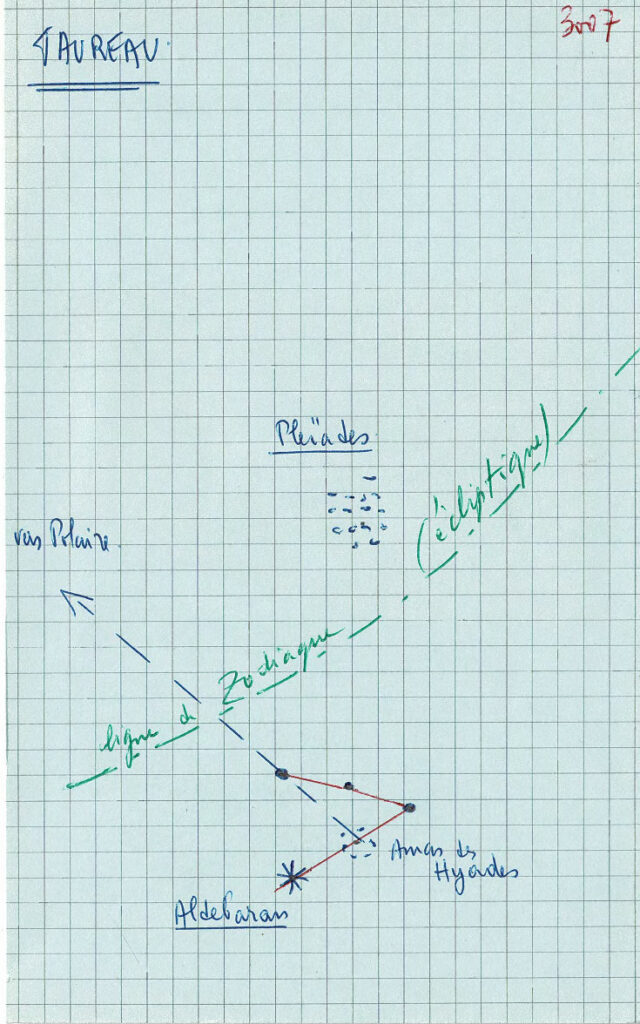 TAUREAU.
3007
Pleïades
(écliptique)
vers Polaire.
ligne du Zodiaque
Amas des
Hyades
Aldebaran